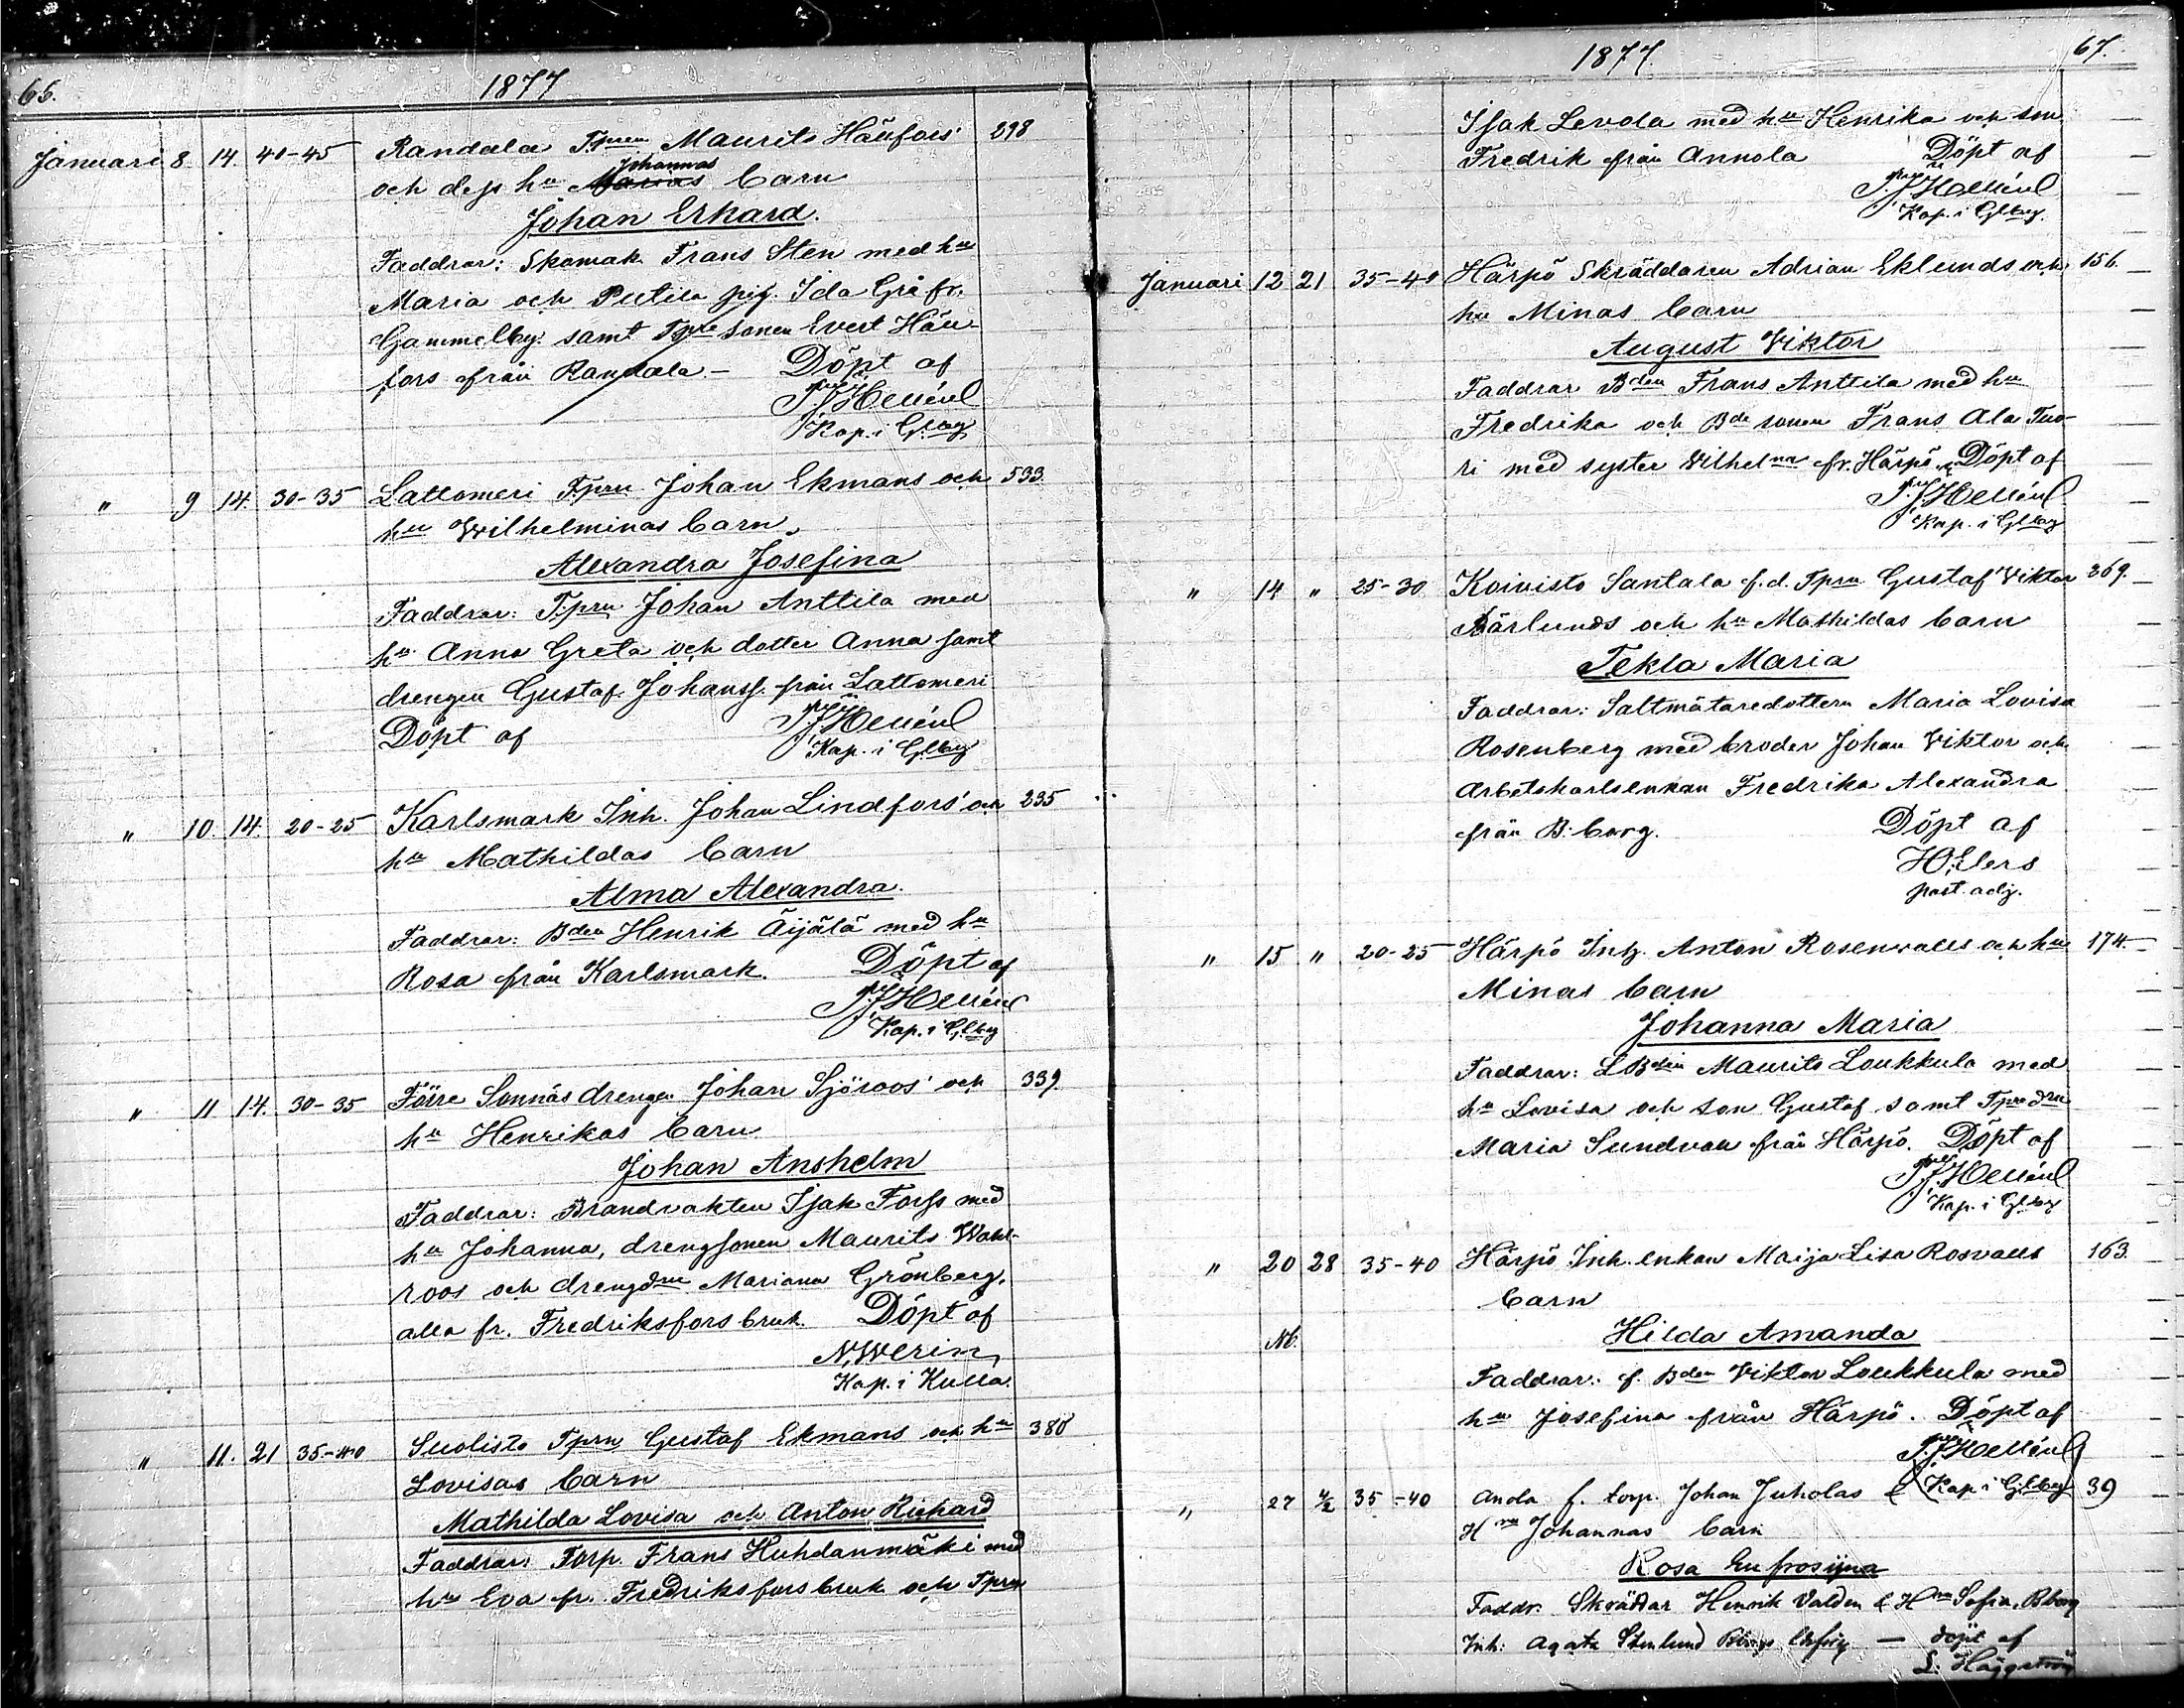 66. 1877
Januari 8 14 40-45 Randala Tprn Maurits Häufors' 298
och dess hu Johannas barn
Johan Erhard.
Faddrar: Skomak. Frans Sten med hu
Maria och Putila pig. Ida Grå fr.
Gammelby samt Tpre sonen Evert Häu-
fors från Randala.— Döpt af
Kap. i Glbg
" 9 14. 30-35 Lattomeri Tprn Johan Ekmans och 533.
hu Wilhelminas barn,
Alexandra Josefina
Faddrar: Tprn Johan Anttila med
hu Anna Greta och dotter Anna samt
drengen Gustaf Johanss. från Lattomeri
Döpt af
Kap. i Glbg
" 10. 14. 20-25 Karlsmark Inh. Johan Lindfors' och 235
hu Mathildas barn
Alma Alexandra.
Faddrar: Bden Henrik Äijälä med hu
Rosa från Karlsmark. Döpt af
Kap. i Glbg
" 11 14. 30-35 Sonnäs drengen Johan Sjöroos' och 339.
hu Henrikas barn
Johan Anshelm
Faddrar: Brandvakten Isak Forss med
hu Johanna, drengsonen Maurits Wahl-
roos och drengdrn Mariana Grönberg,
alla fr. Fredriksfors bruk. Döpt af
Kap. i Kulla.
" 11. 21 35-40 Suolisto Tprn Gustaf Ekmans och hu 380
Lovisas barn
Mathilda Lovisa och Anton Richard
Faddrar: Torp. Frans Huhdanmäki med
hu Eva fr. Fredriksfors bruk och Tprn
1877. 67.
Isak Levola med hu Henrika och son
Fredrik från Annola Döpt af
Kap. i Glbg.
Januari 12 21 35-40 Härpö Skräddaren Adrian Eklunds och 156.
hu Minas barn
August Viktor
Faddrar Bden Frans Anttila med hu
Fredrika och Bde sonen Frans Ala Tuo-
ri med syster Vilhelna fr. Härpö. Döpt af
Kap. i Glbg
" 14 " 25-30 Koivisto Santala f.d. Tprn Gustaf Viktor 369.
Bärlunds och hu Mathildas barn
Tekla Maria
Faddrar: Saltmätaredottern Maria Lovisa
Rosenberg med broder Johan Viktor och
Arbetskarlsenkan Fredrika Alexandra
från B:borg. Döpt af
past. adj.
" 15 " 20-25 Härpö Inh. Anton Rosenvalls och hu 174.
Minas barn
Johanna Maria
Faddrar: Maurits Loukkula med
hu Lovisa och son Gustaf samt Tpredrn
Maria Sundvall från Härpö. Döpt af
Kap. i Glbg
" 20 28 35-40 Härpö Inh. enkan Maija Lisa Rosvalls 163.
barn
Nb. Hilda Amanda
Faddrar: f. Bden Viktor Loukkula med
hu Josefina från Härpö. Döpt af
Kap i Glbg
" 27 4/2 35-40 Anola f. torp. Johan Juholas & 39
Hru Johannas barn
Rosa Eufrosyna
Faddr. Skräddar Henrik Valden & Hru Sofia, Bborg
Inh: Agata Stenlund — döpt af
L. Häggström